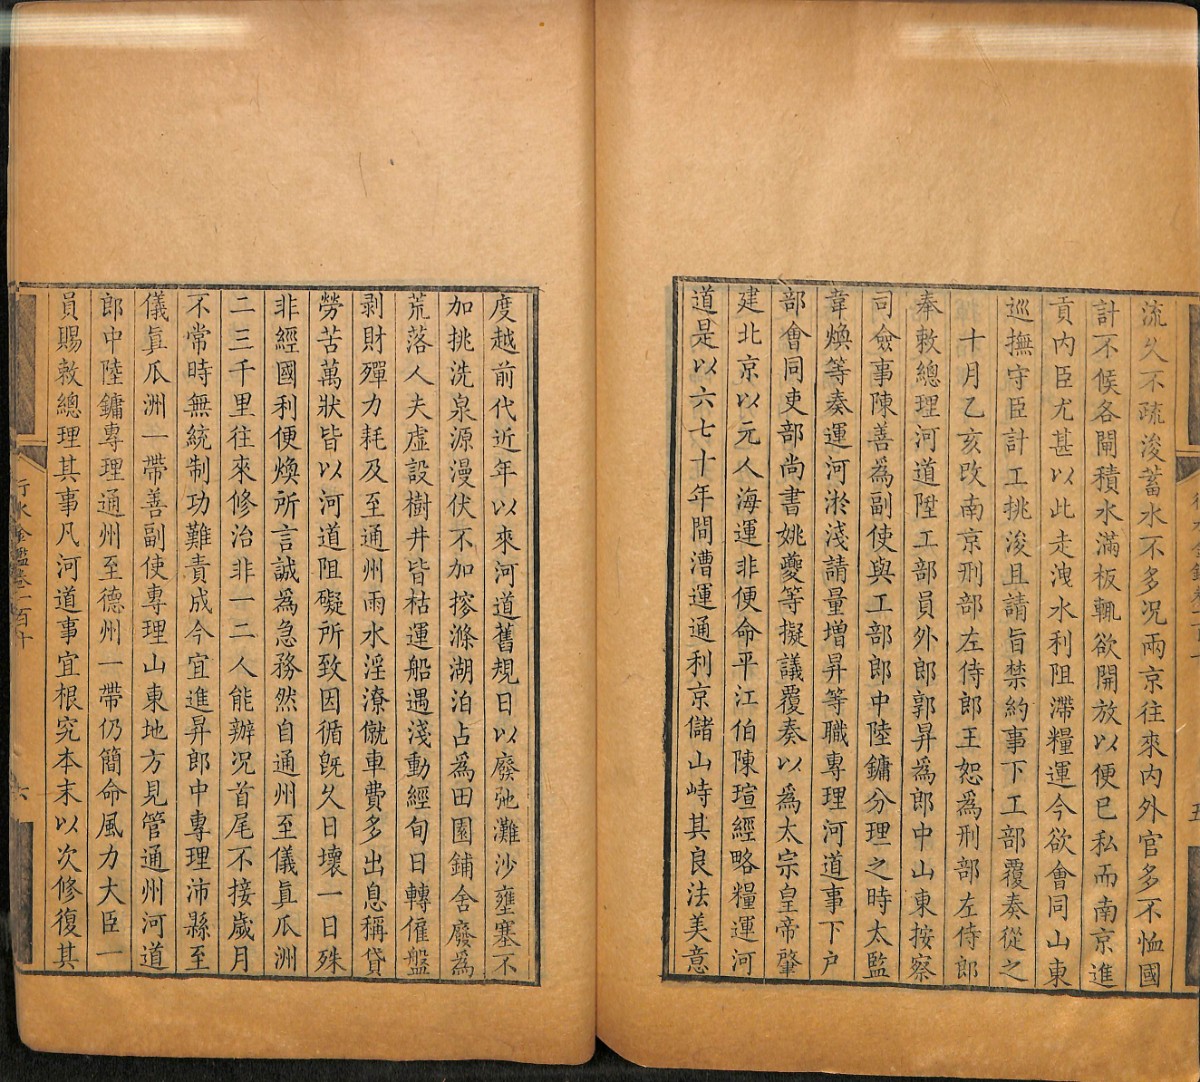 流久不疏浚蓄水不多況兩京往來內外官多不恤國
計不候各閘積水滿板輒欲開放以便已私而南京進
貢內臣尤甚以此走洩水利阻滯糧運今欲會同山東
巡撫守臣計工挑浚且請旨禁約事下工部覆奏從之
十月乙亥改南京刑部左侍郎王恕為刑部左侍郎
奉敕總理河道陞工部員外郎郭昇為郎中山東按察
司僉事陳善為副使與工部郎中陸鏞分理之時太監
韋煥等奏運河淤淺請量增昇等職專理河道事下戶
部會同吏部尚書姚夔等擬議覆奏以為太宗皇帝肇
建北京以元人海運非便命平江伯陳瑄經略糧運河
道是以六七十年間漕運通利京儲山峙其良法美意
度越前代近年以來河道舊規日以廢弛灘沙壅塞不
加挑洗泉源漫伏不加搜滌湖泊占為田園鋪舍廢為
荒落人夫虛設樹井皆枯運船遇淺動經旬日轉僱盤
剥財殫力耗及至通州雨水淫潦僦車費多出息稱貸
勞苦萬狀皆以河道阻礙所致因循旣久日壞一日殊
非經國利便煥所言誠為急務然自通州至儀眞瓜洲
二三千里往來修治非一二人能辦況首尾不接歲月
不常時無統制功難責成今宜進昇郎中專理沛縣至
儀眞瓜洲一帶善副使專理山東地方見管通州河道
郎中陸鏞專理通州至德州一帶仍簡命風力大臣一
員賜敕總理其事凡河道事宜根究本末以次修復其
行水金鑑卷一百十
六